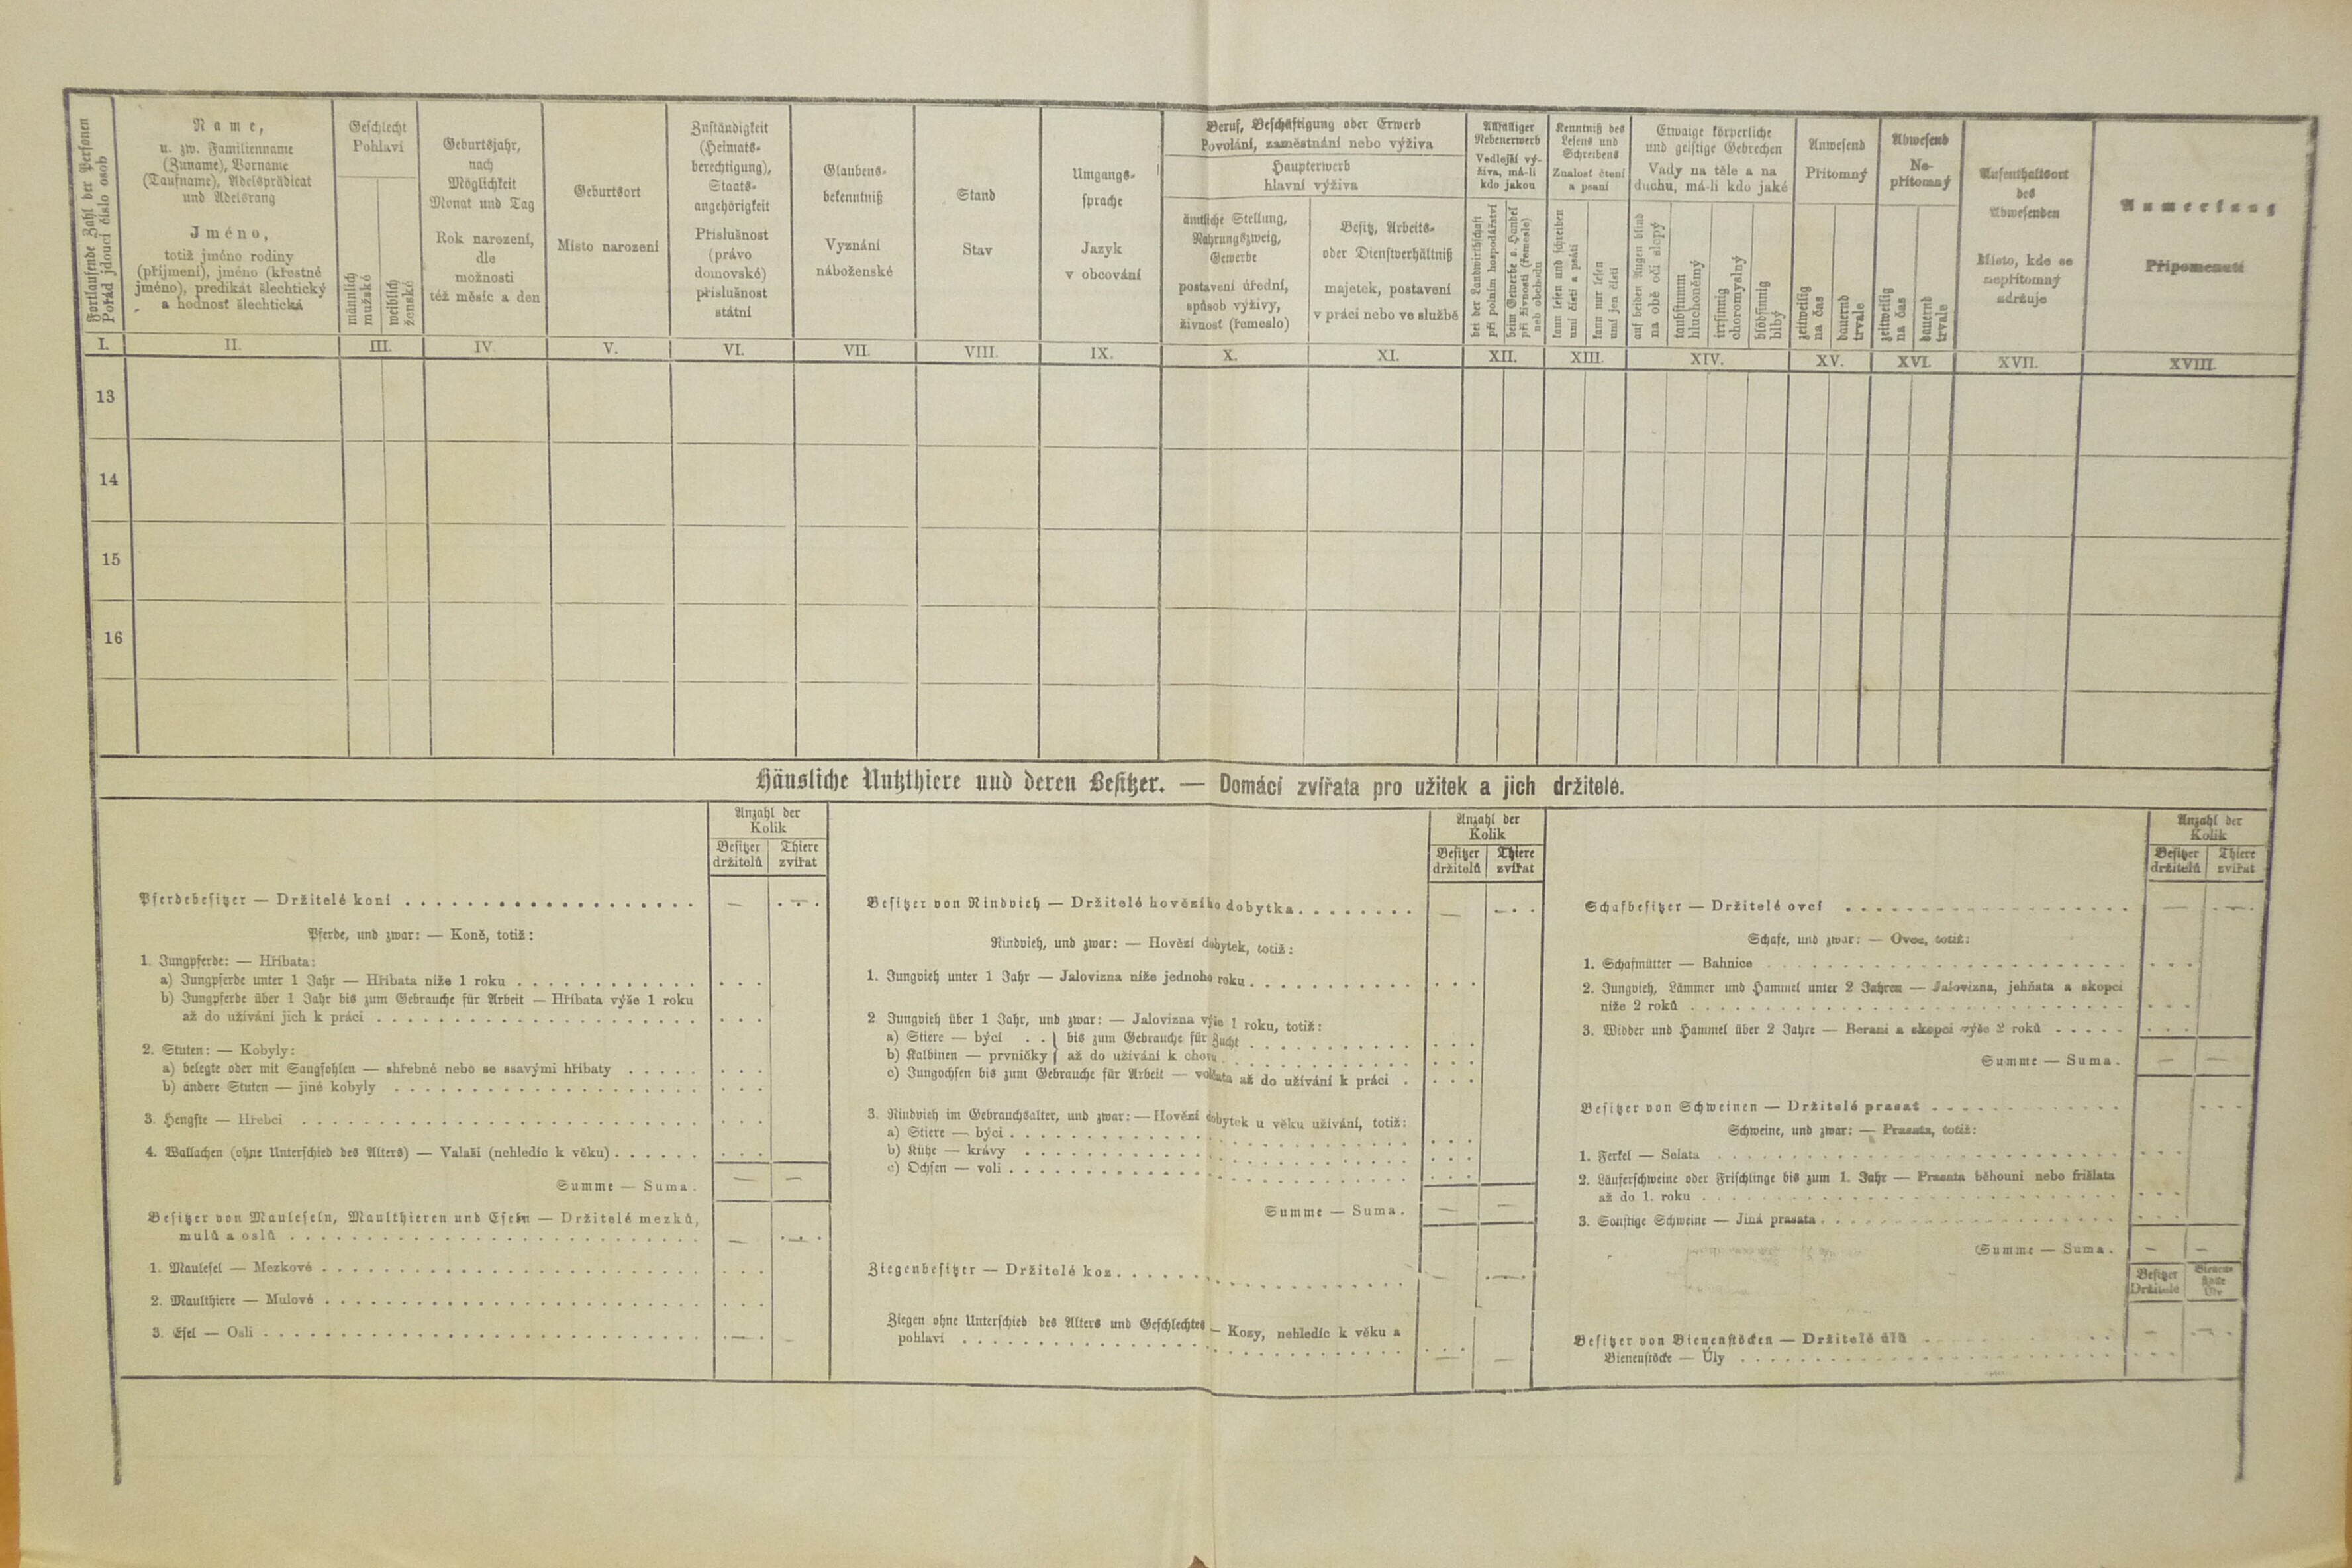 Fortlaufende Zahl der Personen
Pořád jdoucí číslo osob
Name,
u. zw. Familienname
(Zuname), Vorname
(Taufname), Adelsprädicat
und Adelsrang
Jméno,
totiž jméno rodiny
(příjmení), jméno (křestné
jméno), predikát šlechtický
a hodnost šlechtická
Geschlecht
Pohlaví
männlich
mužské
weiblich
ženské
Geburtsjahr,
nach
Möglichkeit
Monat und Tag
Rok narození,
dle
možnosti
též měsíc a den
Geburtsort
Místo narození
Zuständigkeit
(Heimats-
berechtigung),
Staats-
angehörigkeit
Příslušnost
(právo
domovské)
příslušnost
státní
Glaubens-
bekenntniß
Vyznání
náboženské
Stand
Stav
Umgangs-
sprache
Jazyk
v obcování
Beruf, Beschäftigung oder Erwerb
Povolání, zaměstnání nebo výživa
Haupterwerb
hlavní výživa
ämtliche Stellung,
Nahrungszweig,
Gewerbe
postavení úřední,
spůsob výživy,
živnost (řemeslo)
Besitz, Arbeits-
oder Dienstverhältniß
majetek, postavení
v práci nebo ve službě
Allfälliger
Nebenerwerb
Vedlejší vý-
živa, má-li
kdo jakou
bei der Landwirthschaft
při polním hospodářství
beim Gewerbe o. Handel
při živnosti (řemesle)
neb obchodu
Kenntniß des
Lesens und
Schreibens
Znalost čtení
a psaní
kann lesen und schreiben
umí čísti a psáti
kann nur lesen
umí jen čísti
Etwaige körperliche
und geistige Gebrechen
Vady na těle a na
duchu, má-li kdo jaké
auf beiden Augen blind
na obě oči slepý
taubstumm
hluchoněmý
irrsinnig
choromyslný
blödsinnig
blbý
Anwesend
Přítomný
zeitweilig
na čas
dauernd
trvale
Abwesend
Ne-
přítomný
zeitweilig
na čas
dauernd
trvale
Aufenthaltsort
des
Abwesenden
Místo, kde se
nepřítomný
zdržuje
Anmerkung
Připomenutí
I. II. III. IV. V. VI. VII. VIII. IX. X. XI. XII. XIII. XIV. XV. XVI. XVII. XVIII.
13
14
15
16
Häusliche Nutzthiere und deren Besitzer. — Domácí zvířata pro užitek a jich držitelé.
Anzahl der
Kolik
Besitzer
držitelů
Thiere
zvířat
Pferdebesitzer — Držitelé koní
Pferde, und zwar: — Koně, totiž:
1. Jungpferde: — Hříbata:
a) Jungpferde unter 1 Jahr — Hříbata níže 1 roku
b) Jungpferde über 1 Jahr bis zum Gebrauche für Arbeit — Hříbata výše 1 roku
až do užívání jich k práci
2. Stuten: — Kobyly:
a) belegte oder mit Saugfohlen — shřebné nebo se ssavými hříbaty
b) andere Stuten — jiné kobyly
3. Hengste — Hřebci
4. Wallachen (ohne Unterschied des Alters) — Valaši (nehledíc k věku)
Summe — Suma.
Besitzer von Mauleseln, Maulthieren und Eseln — Držitelé mezků,
mulů a oslů
1. Maulesel — Mezkové
2. Maulthiere — Mulové
3. Esel — Osli
Anzahl der
Kolik
Besitzer
držitelů
Thiere
zvířat
Besitzer von Rindvieh — Držitelé hovězího dobytka
Rindvieh, und zwar: — Hovězí dobytek, totiž:
1. Jungvieh unter 1 Jahr — Jalovizna níže jednoho roku
2 Jungvieh über 1 Jahr, und zwar: — Jalovizna výše 1 roku, totiž:
a) Stiere — býci . . } bis zum Gebrauche für Zucht
b) Kalbinen — prvničky } až do užívání k chovu
c) Jungochsen bis zum Gebrauche für Arbeit — volčata až do užívání k práci
3. Rindvieh im Gebrauchsalter, und zwar: — Hovězí dobytek u věku užívání, totiž:
a) Stiere — býci
b) Kühe — krávy
c) Ochsen — voli
Summe — Suma.
Ziegenbesitzer — Držitelé koz
Ziegen ohne Unterschied des Alters und Geschlechtes — Kozy, nehledíc k věku a
pohlaví
Anzahl der
Kolik
Besitzer
držitelů
Thiere
zvířat
Schafbesitzer — Držitelé ovcí
Schafe, und zwar: — Ovce, totiž:
1. Schafmütter — Bahnice
2. Jungvieh, Lämmer und Hammel unter 2 Jahren — Jalovizna, jehňata a skopci
níže 2 roků
3. Widder und Hammel über 2 Jahre — Berani a skopci výše 2 roků
Summe — Suma.
Besitzer von Schweinen — Držitelé prasat
Schweine, und zwar: — Prasata, totiž:
1. Ferkel — Selata
2. Läuferschweine oder Frischlinge bis zum 1. Jahr — Prasata běhouni nebo frišlata
až do 1. roku
3. Sonstige Schweine — Jiná prasata
Summe — Suma.
Besitzer
Držitelé
Bienen-
stöcke
Úly
Besitzer von Bienenstöcken — Držitelé úlů
Bienenstöcke — Úly